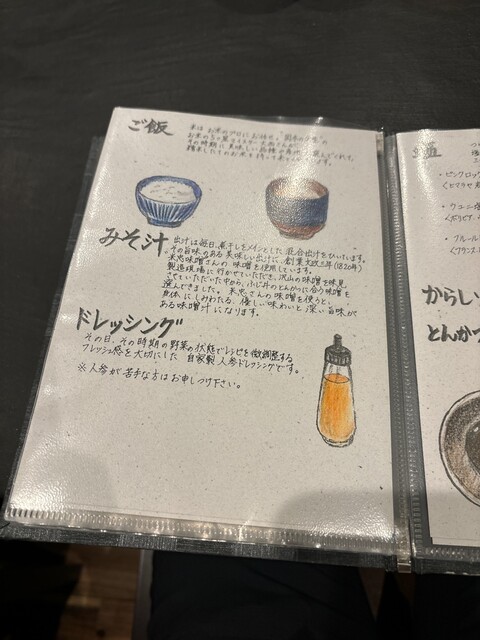 ご飯
米は お米のプロにお任せ。
みそ汁
出汁は毎日、煮干しをメインとした混合出汁をひいています。
その旨味のある美味しい出汁に、創業文政三年(1820年)
米忠味噌さんの味噌を使用しています。
製造現場に行かせていただき、沢山の味噌を味見
させていただいた中から、ふじ井のとんかつに合う味噌を
選んできました。米忠さんの味噌を使うと、
身体にしみわたる、優しい味わいと深い旨味が
ある味噌汁になります。
ドレッシング
その日、その時期の野菜の状態でレシピを微調整する
フレッシュ感を大切にした 自家製人参ドレッシングです。
※人参が苦手な方はお申しつけ下さい。
・ピンクロッ
・ウユニ塩
からし
とんかつ